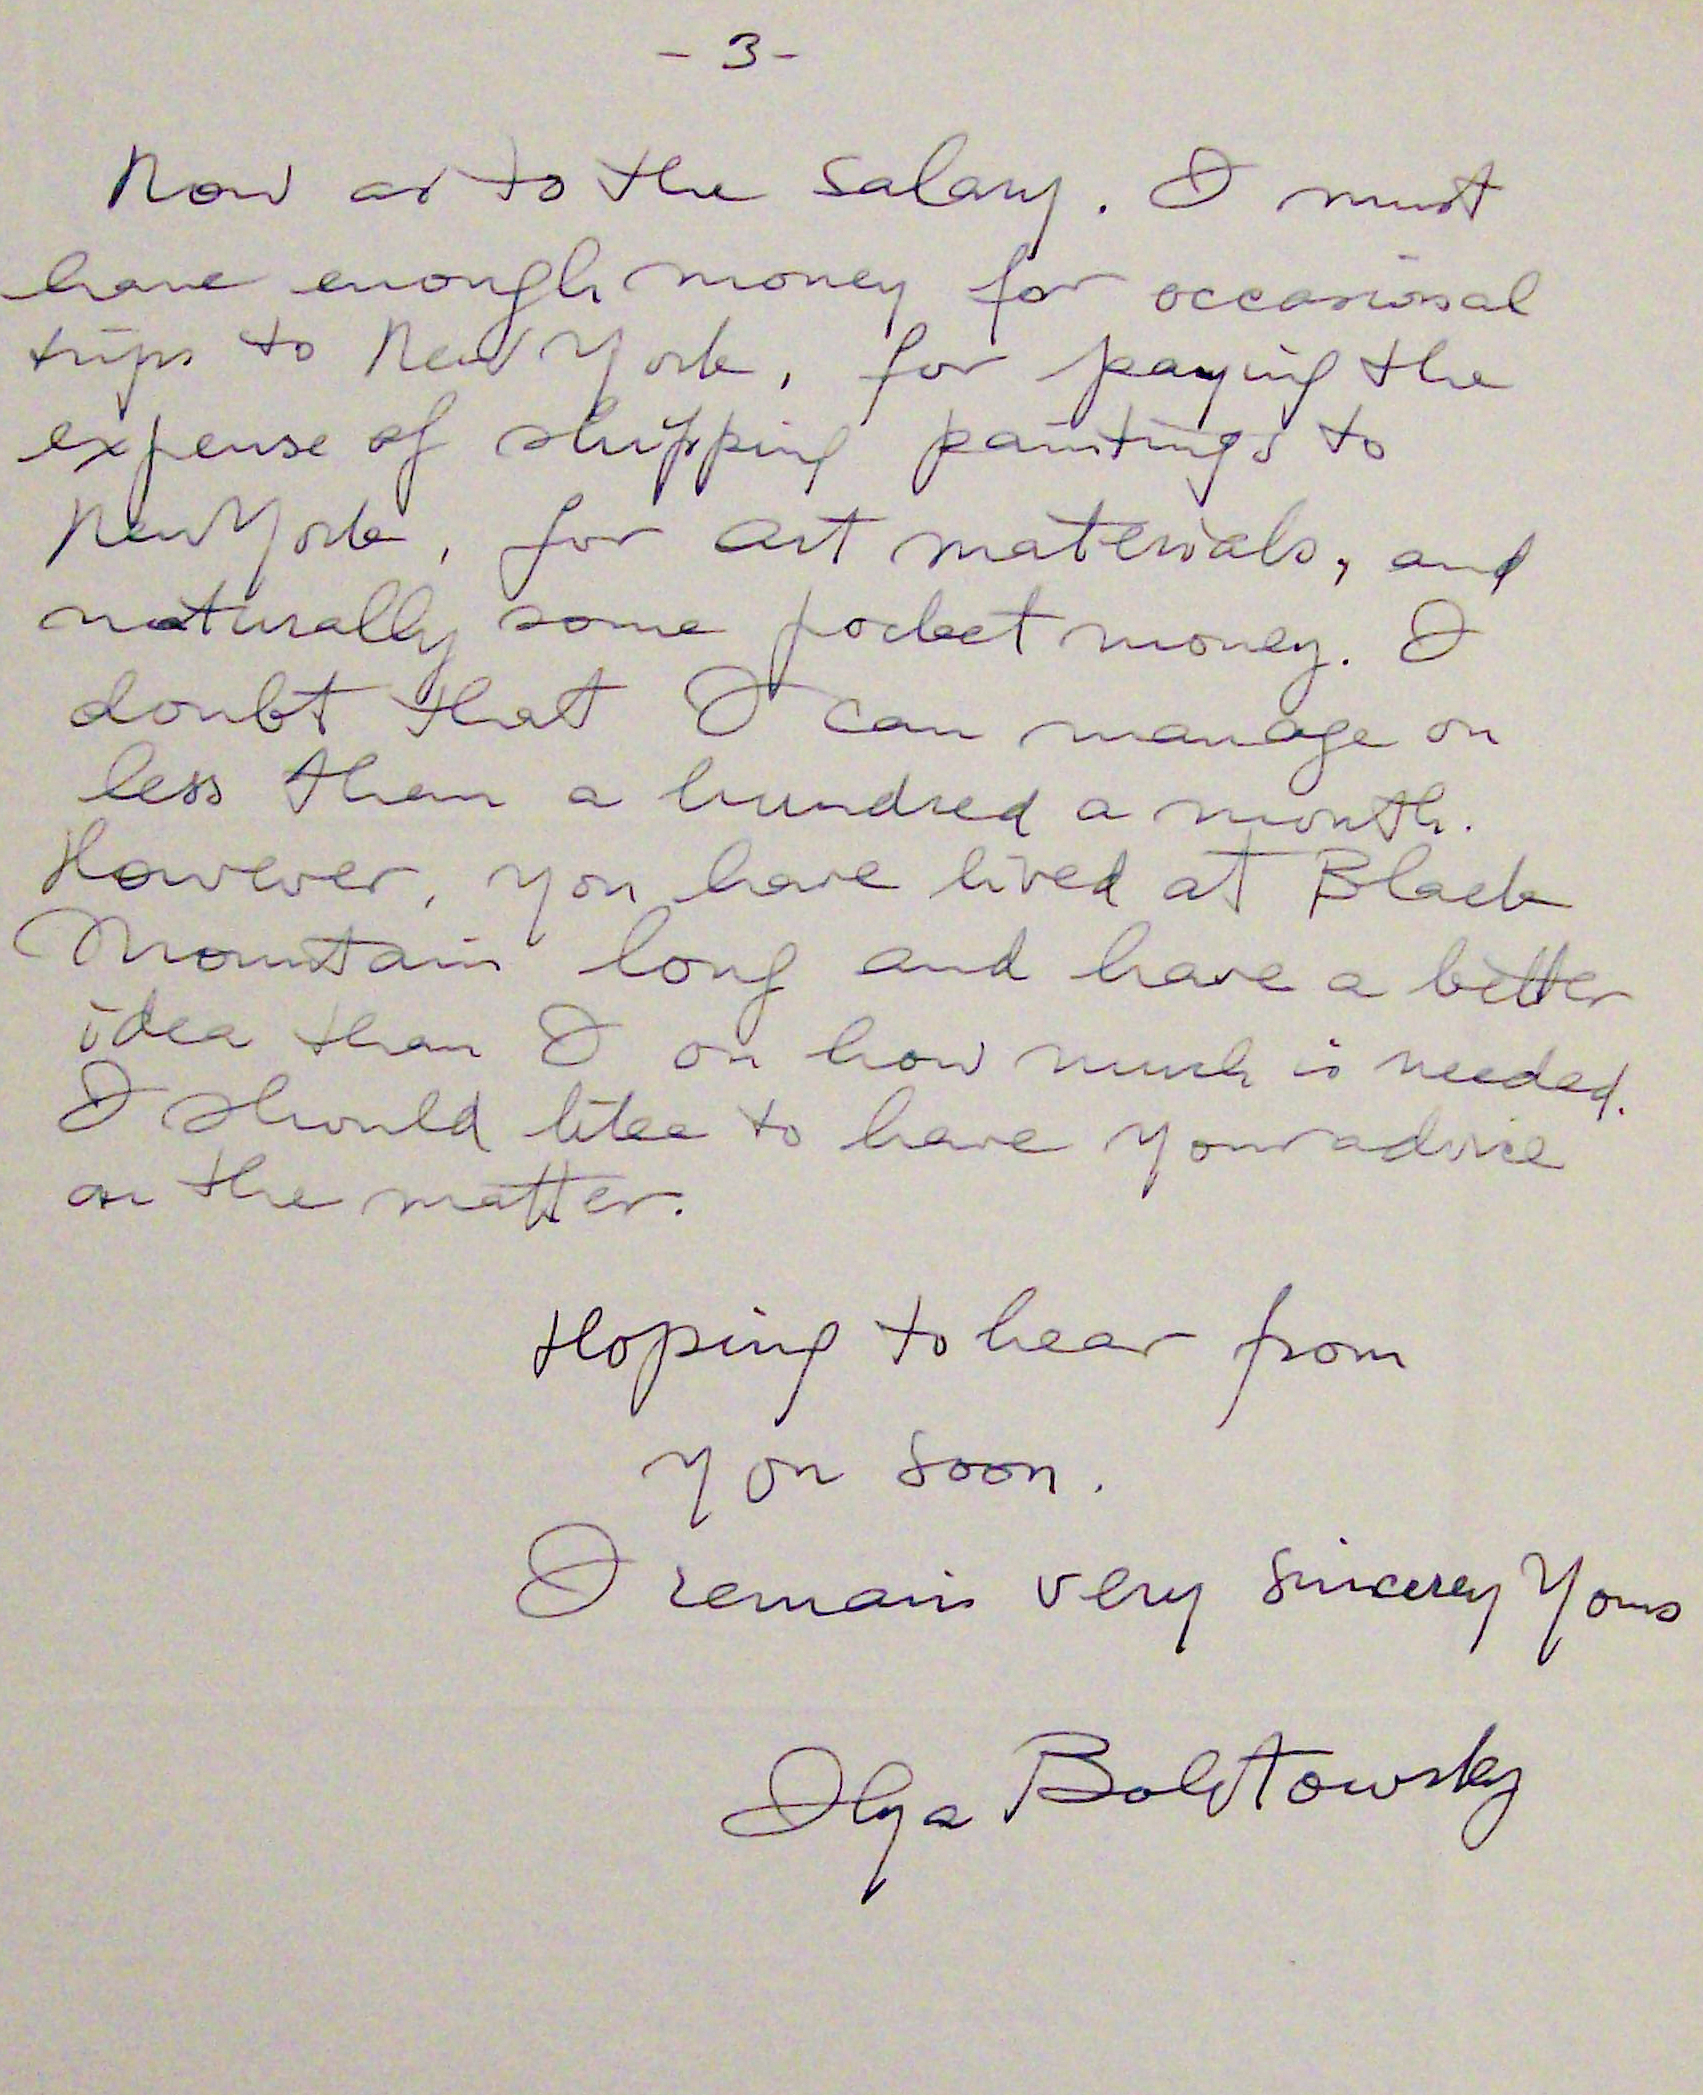 - 3 -
Now as to the salary. I must
have enough money for occasional
trips to New York, for paying the
expense of shipping paintings to
New York, for art materials, and
naturally some pocket money. I
doubt that I can manage on
less than a hundred a month.
However, you have lived at Black
Mountain long and have a better
idea than I on how much is needed.
I should like to have your advice
on the matter.
Hoping to hear from
you soon.
I remain very sincerey Yours
Ilya Bolotowsky